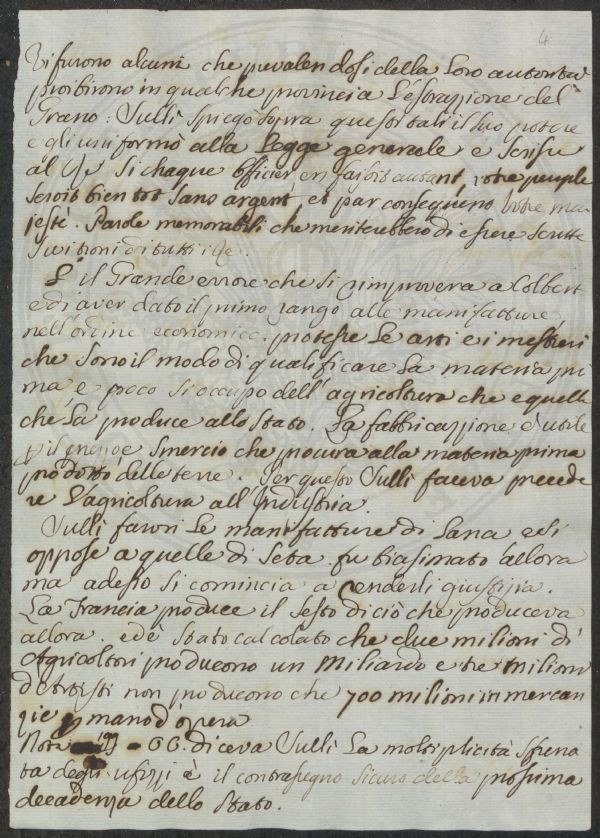 4
Vi furono alcuni che prevalendosi della Loro autorità
proibirono in qualche provincia L'estrazzione del
Grano: Sulli spiegò sopra questi tali il suo potere
e gli uniformò alla Legge generale e scrisse
al Rè Si chaque Officier en faisoit autant, votre peuple
seroit bien tot sans argent, et par consequeno Votre ma
jesté. Parole memorabili che meriterebbero di essere scritte
su i troni di tutti i Rè.
E' il Grande errore che si rimprovera a Colbert
e di aver dato il primo rango alle manifatture
nell'ordine economico. protesse Le arti e i mestieri
che sono il modo di qualificare La materia pri
ma, e poco si occupò dell'agricoltura che è quella
che La produce allo Stato. La fabbricazzione è utile
smercio che procura alla materia prima
prodotto delle terre. Per questo Sulli faceva precede
re L'agricoltura all'Industria.
Sulli favorì Le manifatture di Lana e si
oppose a quelle di Seta fu biasimato allora
ma adesso si comincia a renderli giustizia.
La Francia produce il sesto di ciò che produceva
allora. ed è stato calcolato che due milioni di
Agricoltori producono un miliardo e tre milioni
d'Artisti non producono che 700 milioni in mercan
zie mano d'opera
Nota 199 - OC. diceva Sulli La moltiplicità sfrena
ta degli ufizzj è il contrasegno sicuro della prossima
decadenza dello Stato.